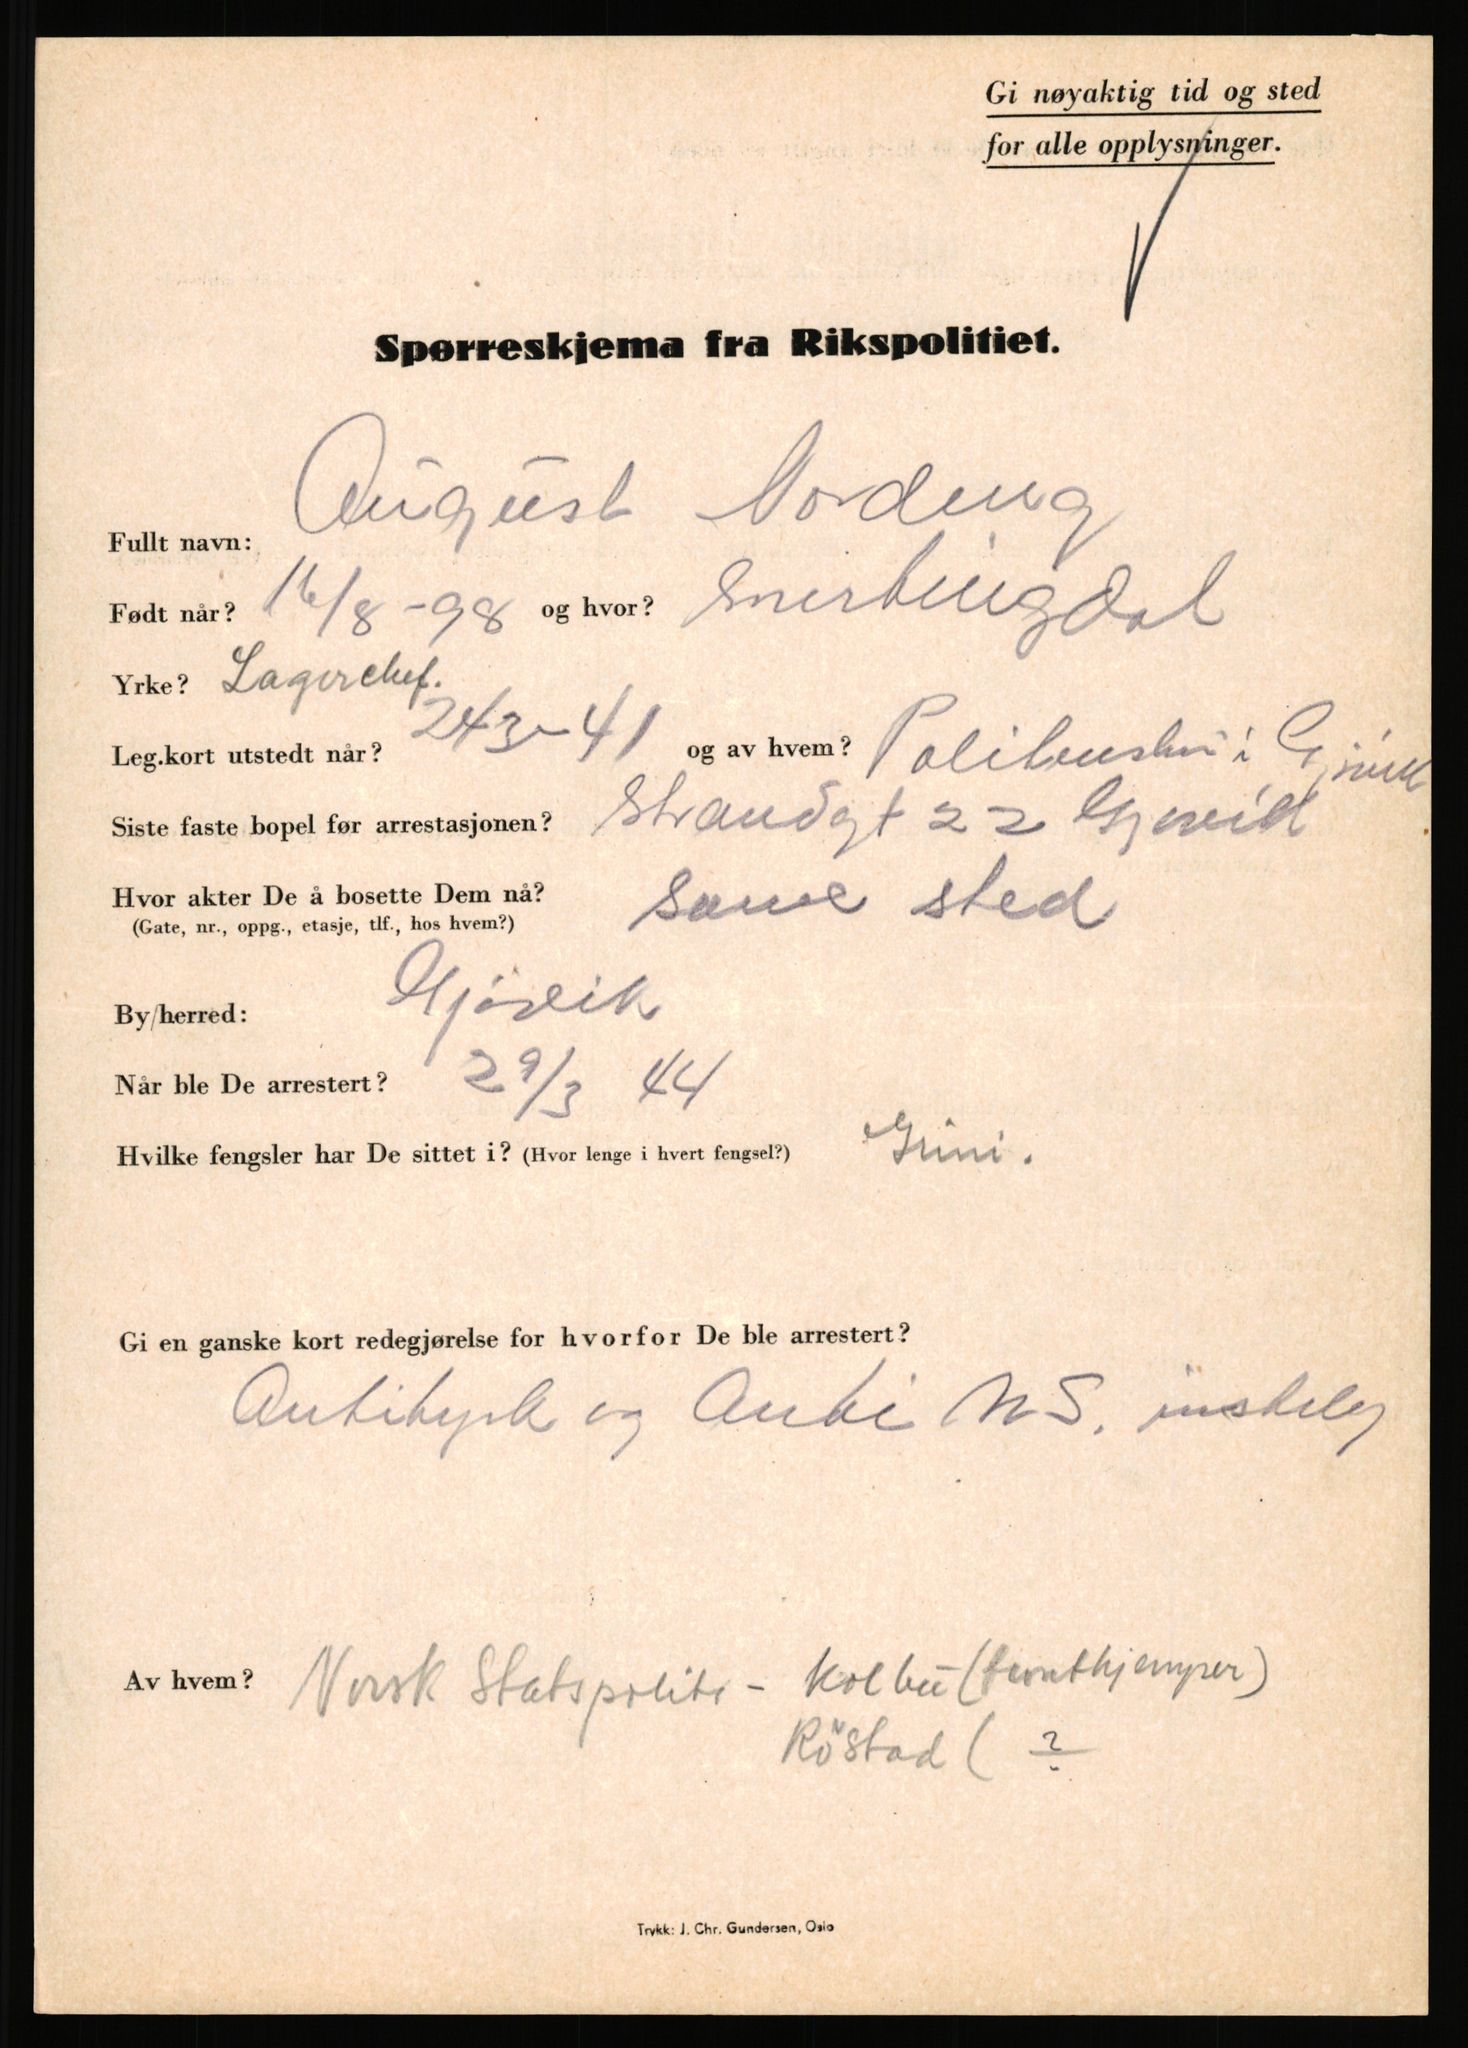 Gi nøyaktig tid og sted
for alle opplysninger.
Spørreskjema fra Rikspolitiet.
Fullt navn: August Nordeng
Født når? 16/8-98 og hvor? Snertingdal
Yrke? Lagerchef.
Leg.kort utstedt når? 243-41 og av hvem? i Gjøvik
Siste faste bopel før arrestasjonen? Strandgt 22 Gjøvik
Hvor akter De å bosette Dem nå? Same sted
(Gate, nr., oppg., etasje, tlf., hos hvem?)
By/herred: Gjövik
Når ble De arrestert? 29/3 44
Hvilke fengsler har De sittet i? (Hvor lenge i hvert fengsel?) Grini.
Gi en ganske kort redegjørelse for hvorfor De ble arrestert?
Antitysk og Anti N S.
Av hvem? Norsk Statspoliti - Kolbu (frontkjemper)
Röstad ( ?
Trykk: J. Chr. Gundersen, Oslo